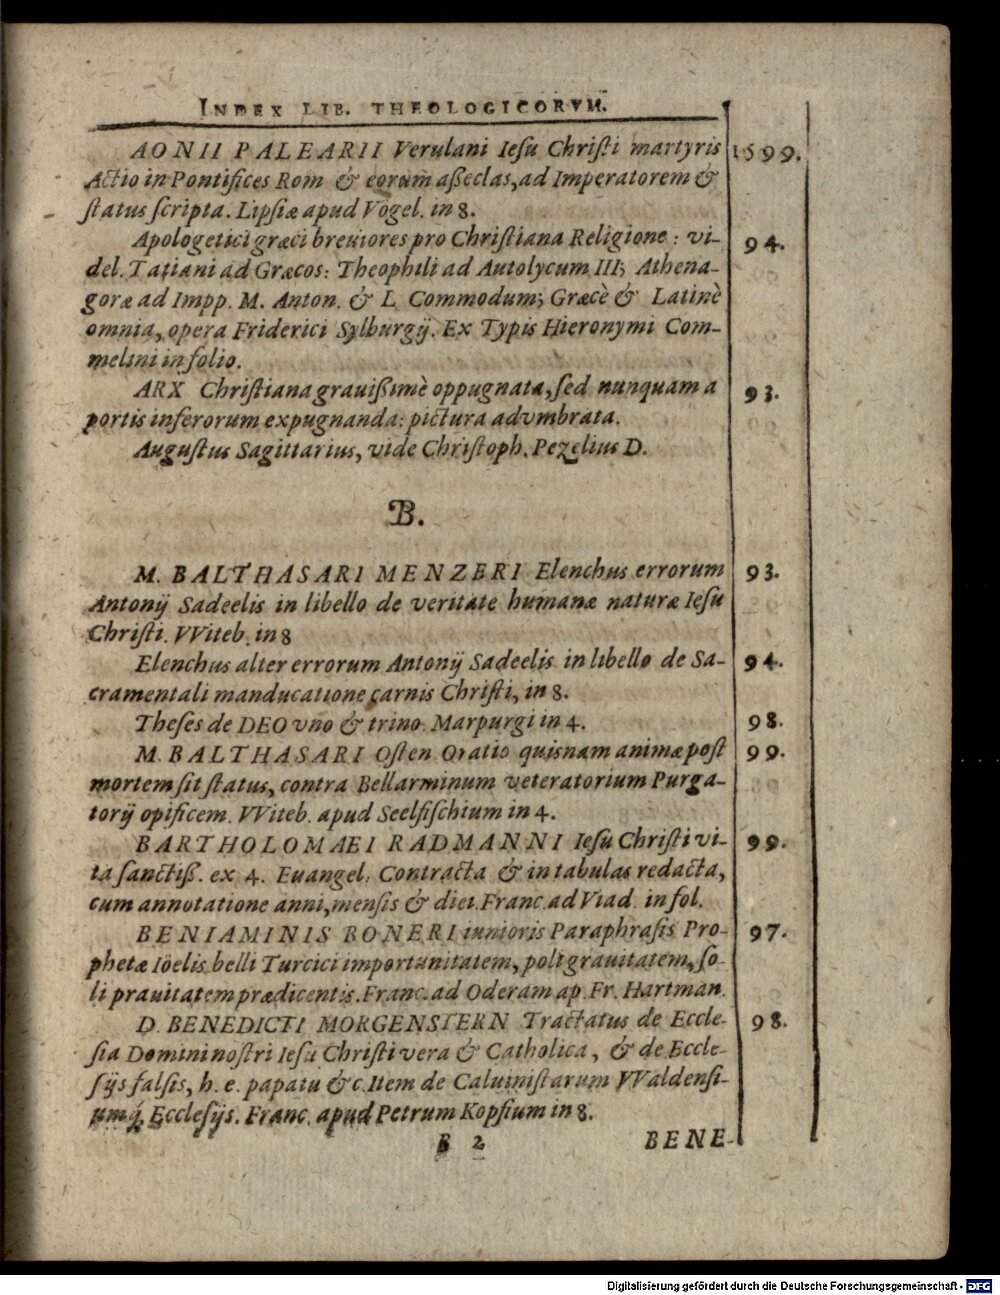 INDEX LIB. THEOLOGICORVM.
AONII PALEARII Verulani Iesu Christi martyris 1599.
Actio in Pontifices Rom & eorum aßeclas, ad Imperatorem &
status scripta. Lipsiæ apud Vogel. in 8.
Apologetici græci breuiores pro Christiana Religione: vi- 94.
del. Tatiani ad Græcos: Theophili ad Autolycum III; Athena-
goræ ad Impp. M. Anton. & L Commodum; Græcè & Latinè
omnia, opera Friderici Sylburgij. Ex Typis Hieronymi Com-
melini in folio.
ARX Christiana grauißimè oppugnata, sed nunquam a 93.
portis inferorum expugnanda: pictura advmbrata.
Augustus Sagittarius, vide Christoph. Pezelius D.
B.
M. BALTHASARI MENZERI Elenchus errorum 93.
Antonij Sadeelis in libello de veritate humanæ naturæ Iesu
Christi. VViteb. in 8
Elenchus alter errorum Antonij Sadeelis in libello de Sa- 94.
cramentali manducatione carnis Christi, in 8.
Theses de DEO vno & trino. Marpurgi in 4. 98.
M. BALTHASARI Osten Oratio quisnam animæ post 99.
mortem sit status, contra Bellarminum veteratorium Purga-
torij opificem. VViteb. apud Seelfischium in 4.
BARTHOLOMAEI RADMANNI Iesu Christi vi- 99.
ta sanctiß. ex 4. Euangel. Contracta & in tabulas redacta,
cum annotatione anni, mensis & diei. Franc. ad Viad. in fol.
BENIAMINIS BONERI iunioris Paraphrasis Pro- 97.
phetæ Ioelis belli Turcici importunitatem, poli grauitatem, so-
li prauitatem prædicentis. Franc. ad Oderam ap. Fr. Hartman.
D. BENEDICTI MORGENSTERN Tractatus de Eccle- 98.
sia Domini nostri Iesu Christi vera & Catholica, & de Eccle-
sijs falsis, h. e. papatu &c. Item de Caluinistarum VValdensi-
umq́ Ecclesijs. Franc. apud Petrum Kopfium in 8.
B 2 BENE-
Digitalisierung gefördert durch die Deutsche Forschungsgemeinschaft - DFG